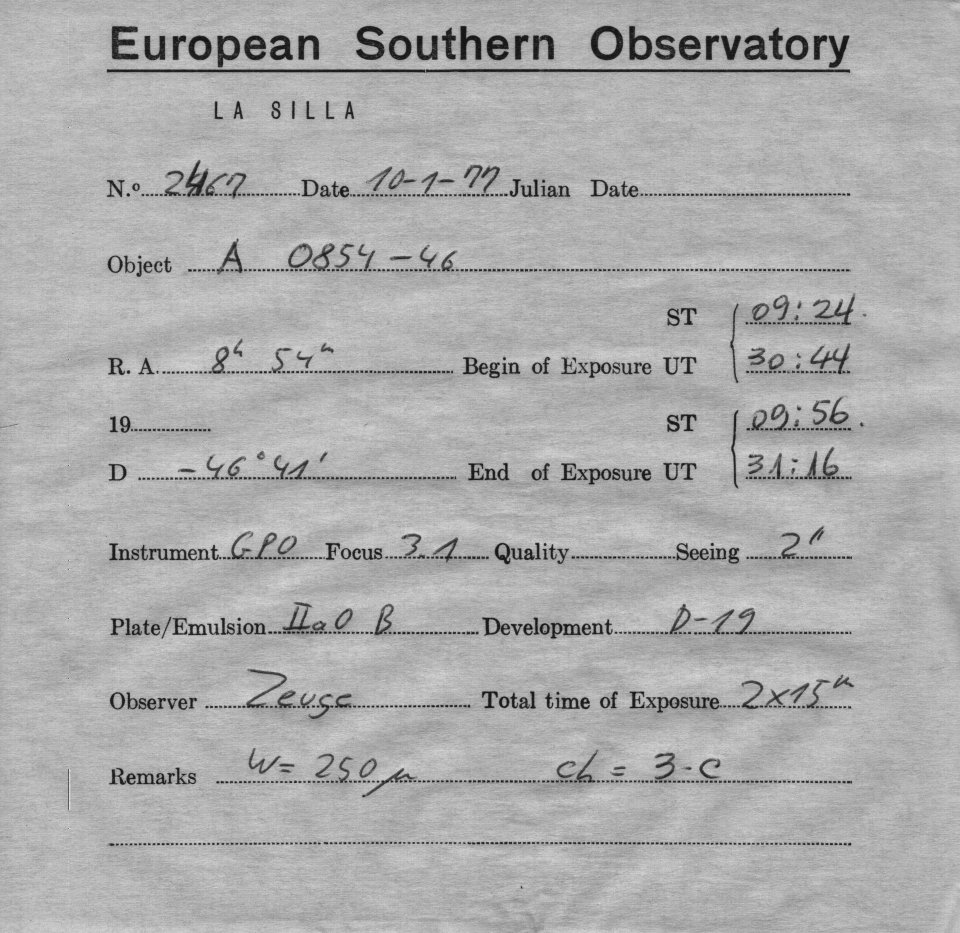 European Southern Observatory
LA SILLA
N.º 2467 Date 10-1-77 Julian Date
Object A 0854-46
ST 09:24
R. A. 8h 54m Begin of Exposure UT 30:44
19 ST 09:56
D -46°41' End of Exposure UT 31:16
Instrument GPO Focus 3.1 Quality Seeing 2"
Plate/Emulsion IIaO B Development D-19
Observer Zeuge Total time of Exposure 2x15m
Remarks W= 250 μ ch = 3-C